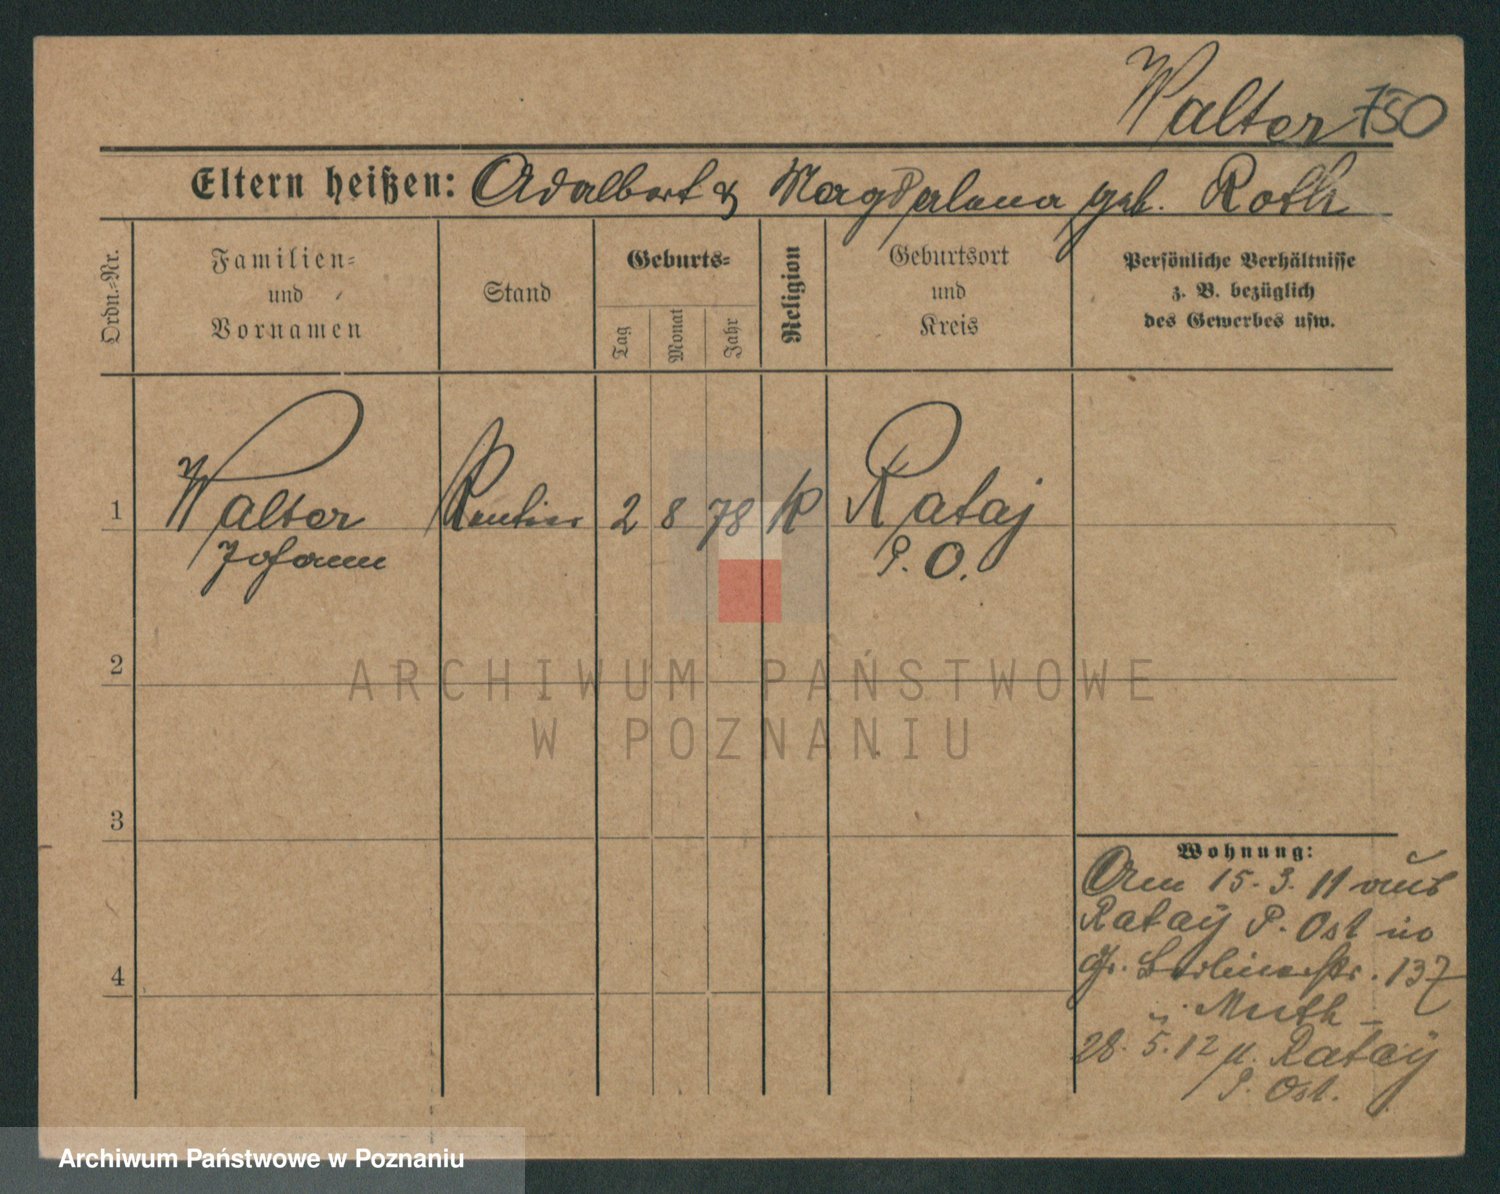 Walter 750
Eltern heißen: Adalbert & Magdalena geb. Roth
Ordn.-Nr.
Familien-
und
Vornamen
Stand
Geburts-
Tag
Monat
Jahr
Religion
Geburtsort
und
Kreis
Persönliche Verhältnisse
z. B. bezüglich
des Gewerbes usw.
1 Walter Rentier 2 8 78 K Rataj
Johann P. O.
2
ARCHIWUM PAŃSTWOWE
W POZNANIU
3
4
Wohnung:
Am 15.3.11 aus
Rataÿ P. Ost in
Gr. Berlinerstr. 137
Muth -
28.5.12 n. Rataÿ
P. Ost.
Archiwum Państwowe w Poznaniu